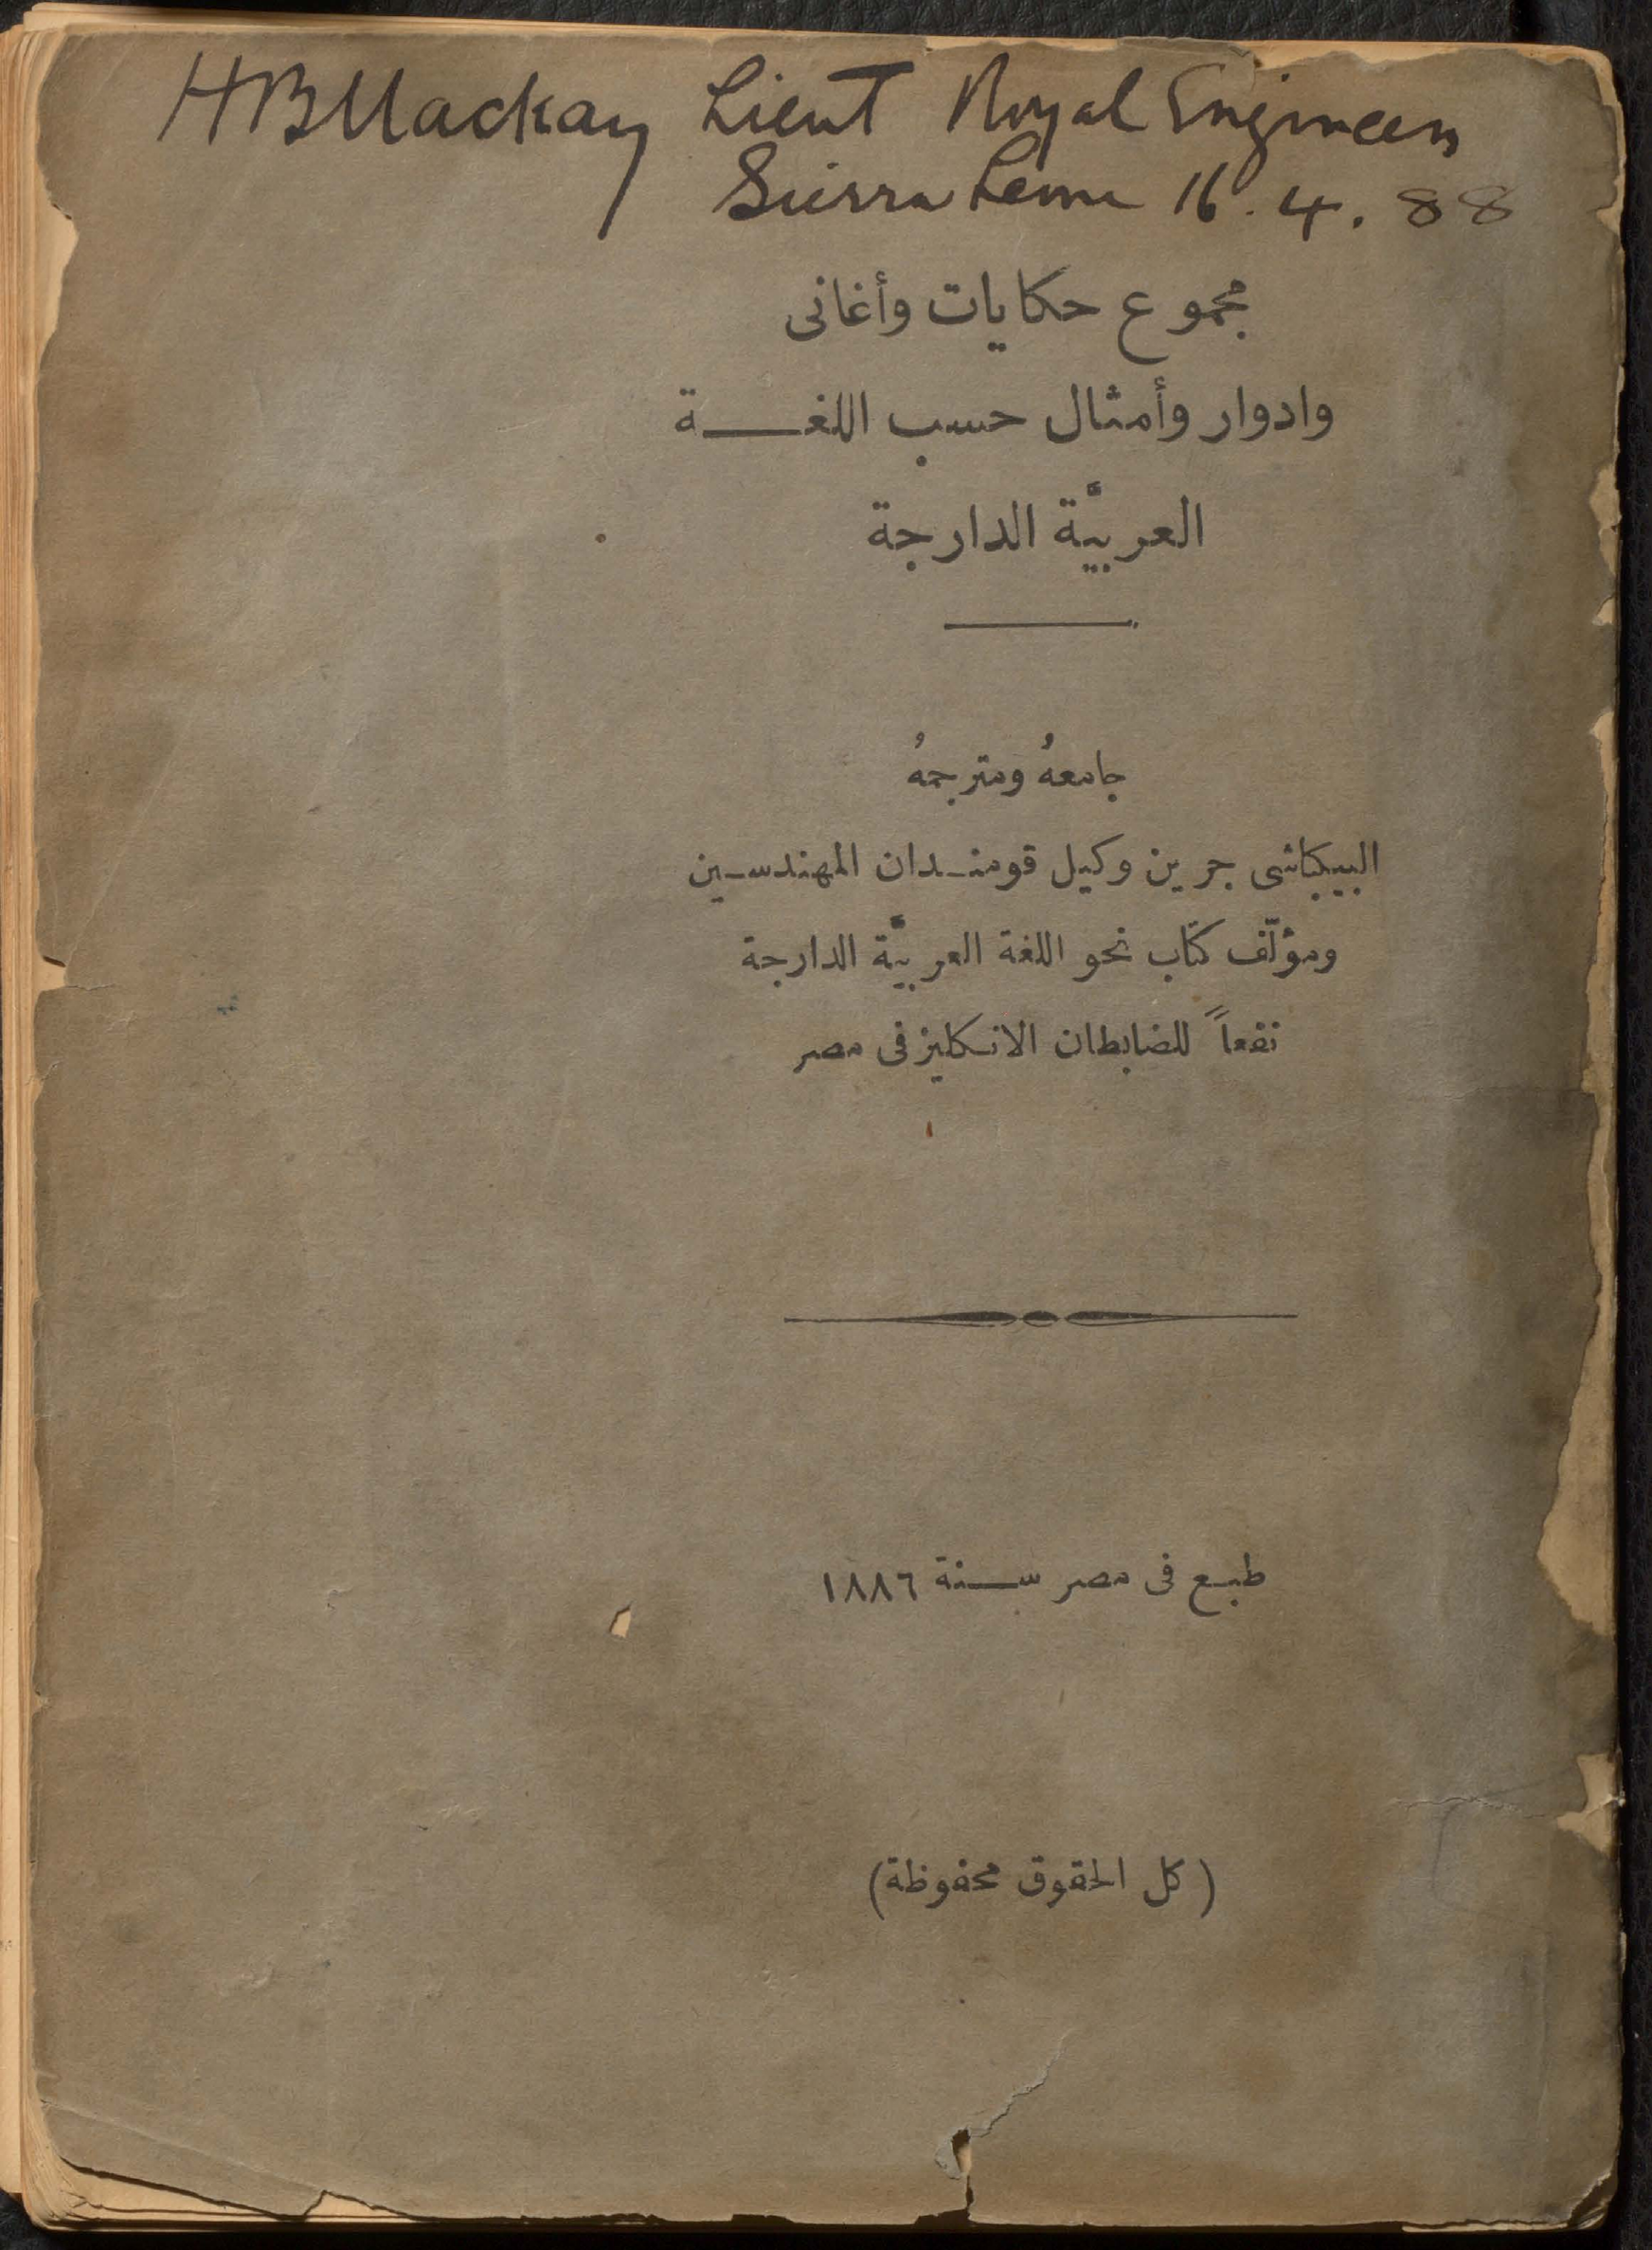 HBMackay Lieut Royal Engineers
Sierra Leone 16.4.88
مجموع حكايات وأغانى
وادوار وأمثال حسب اللغة
العربيَّة الدارجة
جامعهُ ومترجمهُ
البيكباشى جرين وكيل قومندان المهندسين
ومؤلّف كتاب نحو اللغة العربيَّة الدارجة
نفعاً للضابطان الانكليز فى مصر
طبع فى مصر سنة ١٨٨٦
(كل الحقوق محفوظة)